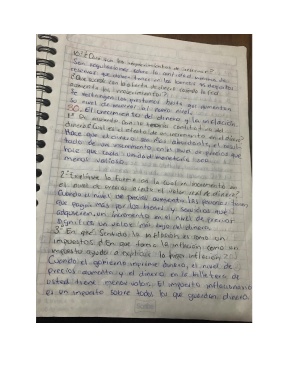 10. ¿Qué son los requerimientos de reservas?
Son regulaciones sobre la cantidad mínima de
reservas que deben tener los bancos
¿Qué sucede con la oferta de dinero cuando la
aumenta los requerimientos?
Se restringen los préstamos hasta que aumentan
su nivel de reservas del nuevo nivel.
30. El crecimiento del dinero y la inflación
1º De acuerdo con la teoría cuantitativa del
dinero ¿Cuál es el efecto de un incremento en el dinero?
Hace que el dinero sea más abundante, el resul-
tado de un incremento en el nivel de precios que
hace que cada unidad monetaria sea
menos valiosa.
2º Explique la forma en la cual un incremento en
el nivel de precios afecta el valor real del dinero?
Cuando el nivel de precios aumenta las personas tienen
que pagar más por los bienes y servicios que
adquieren, un incremento en el nivel de precios
significa un valor más bajo del dinero.
3º En qué sentido la inflación es como un
impuesto? ¿En qué forma la inflación como un
impuesto ayuda a explicar la hiperinflación?
Cuando el gobierno imprime dinero, el nivel de
precios aumenta y el dinero en la billetera de
usted tiene menos valor. El impuesto inflacionario
es un impuesto sobre todos los que guardan dinero.